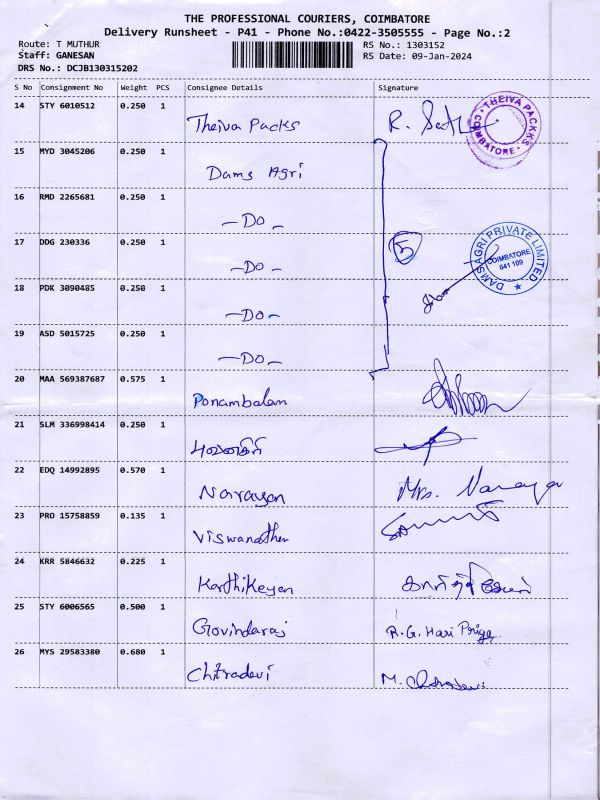 THE PROFESSIONAL COURIERS, COIMBATORE
Delivery Runsheet - P41 - Phone No.:0422-3505555 - Page No.:2
Route: T MUTHUR
Staff: GANESAN
DRS No.: DCJB130315202
RS No.: 1303152
RS Date: 09-Jan-2024
S No Consignment No Weight PCS Consignee Details Signature
14 STY 6010512 0.250 1 Theiva Packs R.
THEIVA PACKKS COIMBATORE
15 MYD 3045206 0.250 1 Dams Agri
16 RMD 2265681 0.250 1 -Do-
17 DDG 230336 0.250 1 -Do- 5
DAMS AGRI PRIVATE LIMITED
COIMBATORE
641 109
18 PDK 3090485 0.250 1 -Do-
19 ASD 5015725 0.250 1 -Do-
20 MAA 569387687 0.575 1 Ponambalam
21 SLM 336998414 0.250 1
22 EDQ 14992895 0.570 1 Narayan Mrs. Naraya
23 PRO 15758859 0.135 1 Viswanathan
24 KRR 5846632 0.225 1 Karthikeyan
25 STY 6006565 0.500 1 Govindaraj R.G. Hari Priya
26 MYS 29583380 0.680 1 Chitradevi M.